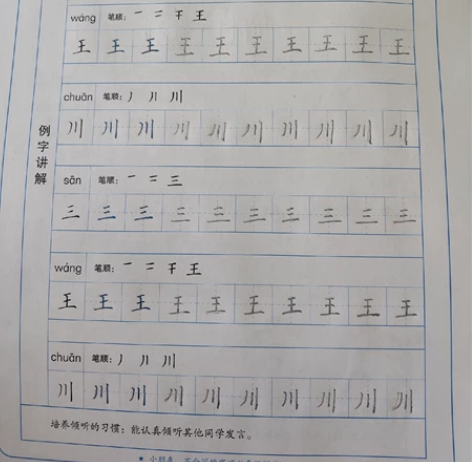 wáng 笔顺: 一 二 干 王
王 王 王 王 王 王 王 王 王 王
chuān 笔顺: 丿 丿丨 川
川 川 川 川 川 川 川 川 川 川
例字讲解
sān 笔顺: 一 二 三
三 三 三 三 三 三 三 三 三 三
wáng 笔顺: 一 二 干 王
王 王 王 王 王 王 王 王 王 王
chuān 笔顺: 丿 丿丨 川
川 川 川 川 川 川 川 川 川 川
培养倾听的习惯: 能认真倾听其他同学发言。